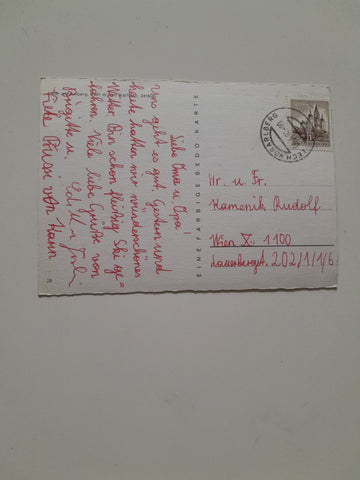 Liebe Oma u. Opa!
uns geht es gut. Gestern und
heute hatten wir wunderschönes
Wetter. Bin schon fleißig Ski ge=
fahren. Viele liebe Grüße von
Brigitte u.
Liebe Bussi von Hann
EINE FARBIGE SEDO-KARTE
LECH VORARLBERG
Hr. u. Fr.
Kamenik Rudolf
Wien X. 1100
Laxenbergst. 202/1/1/6